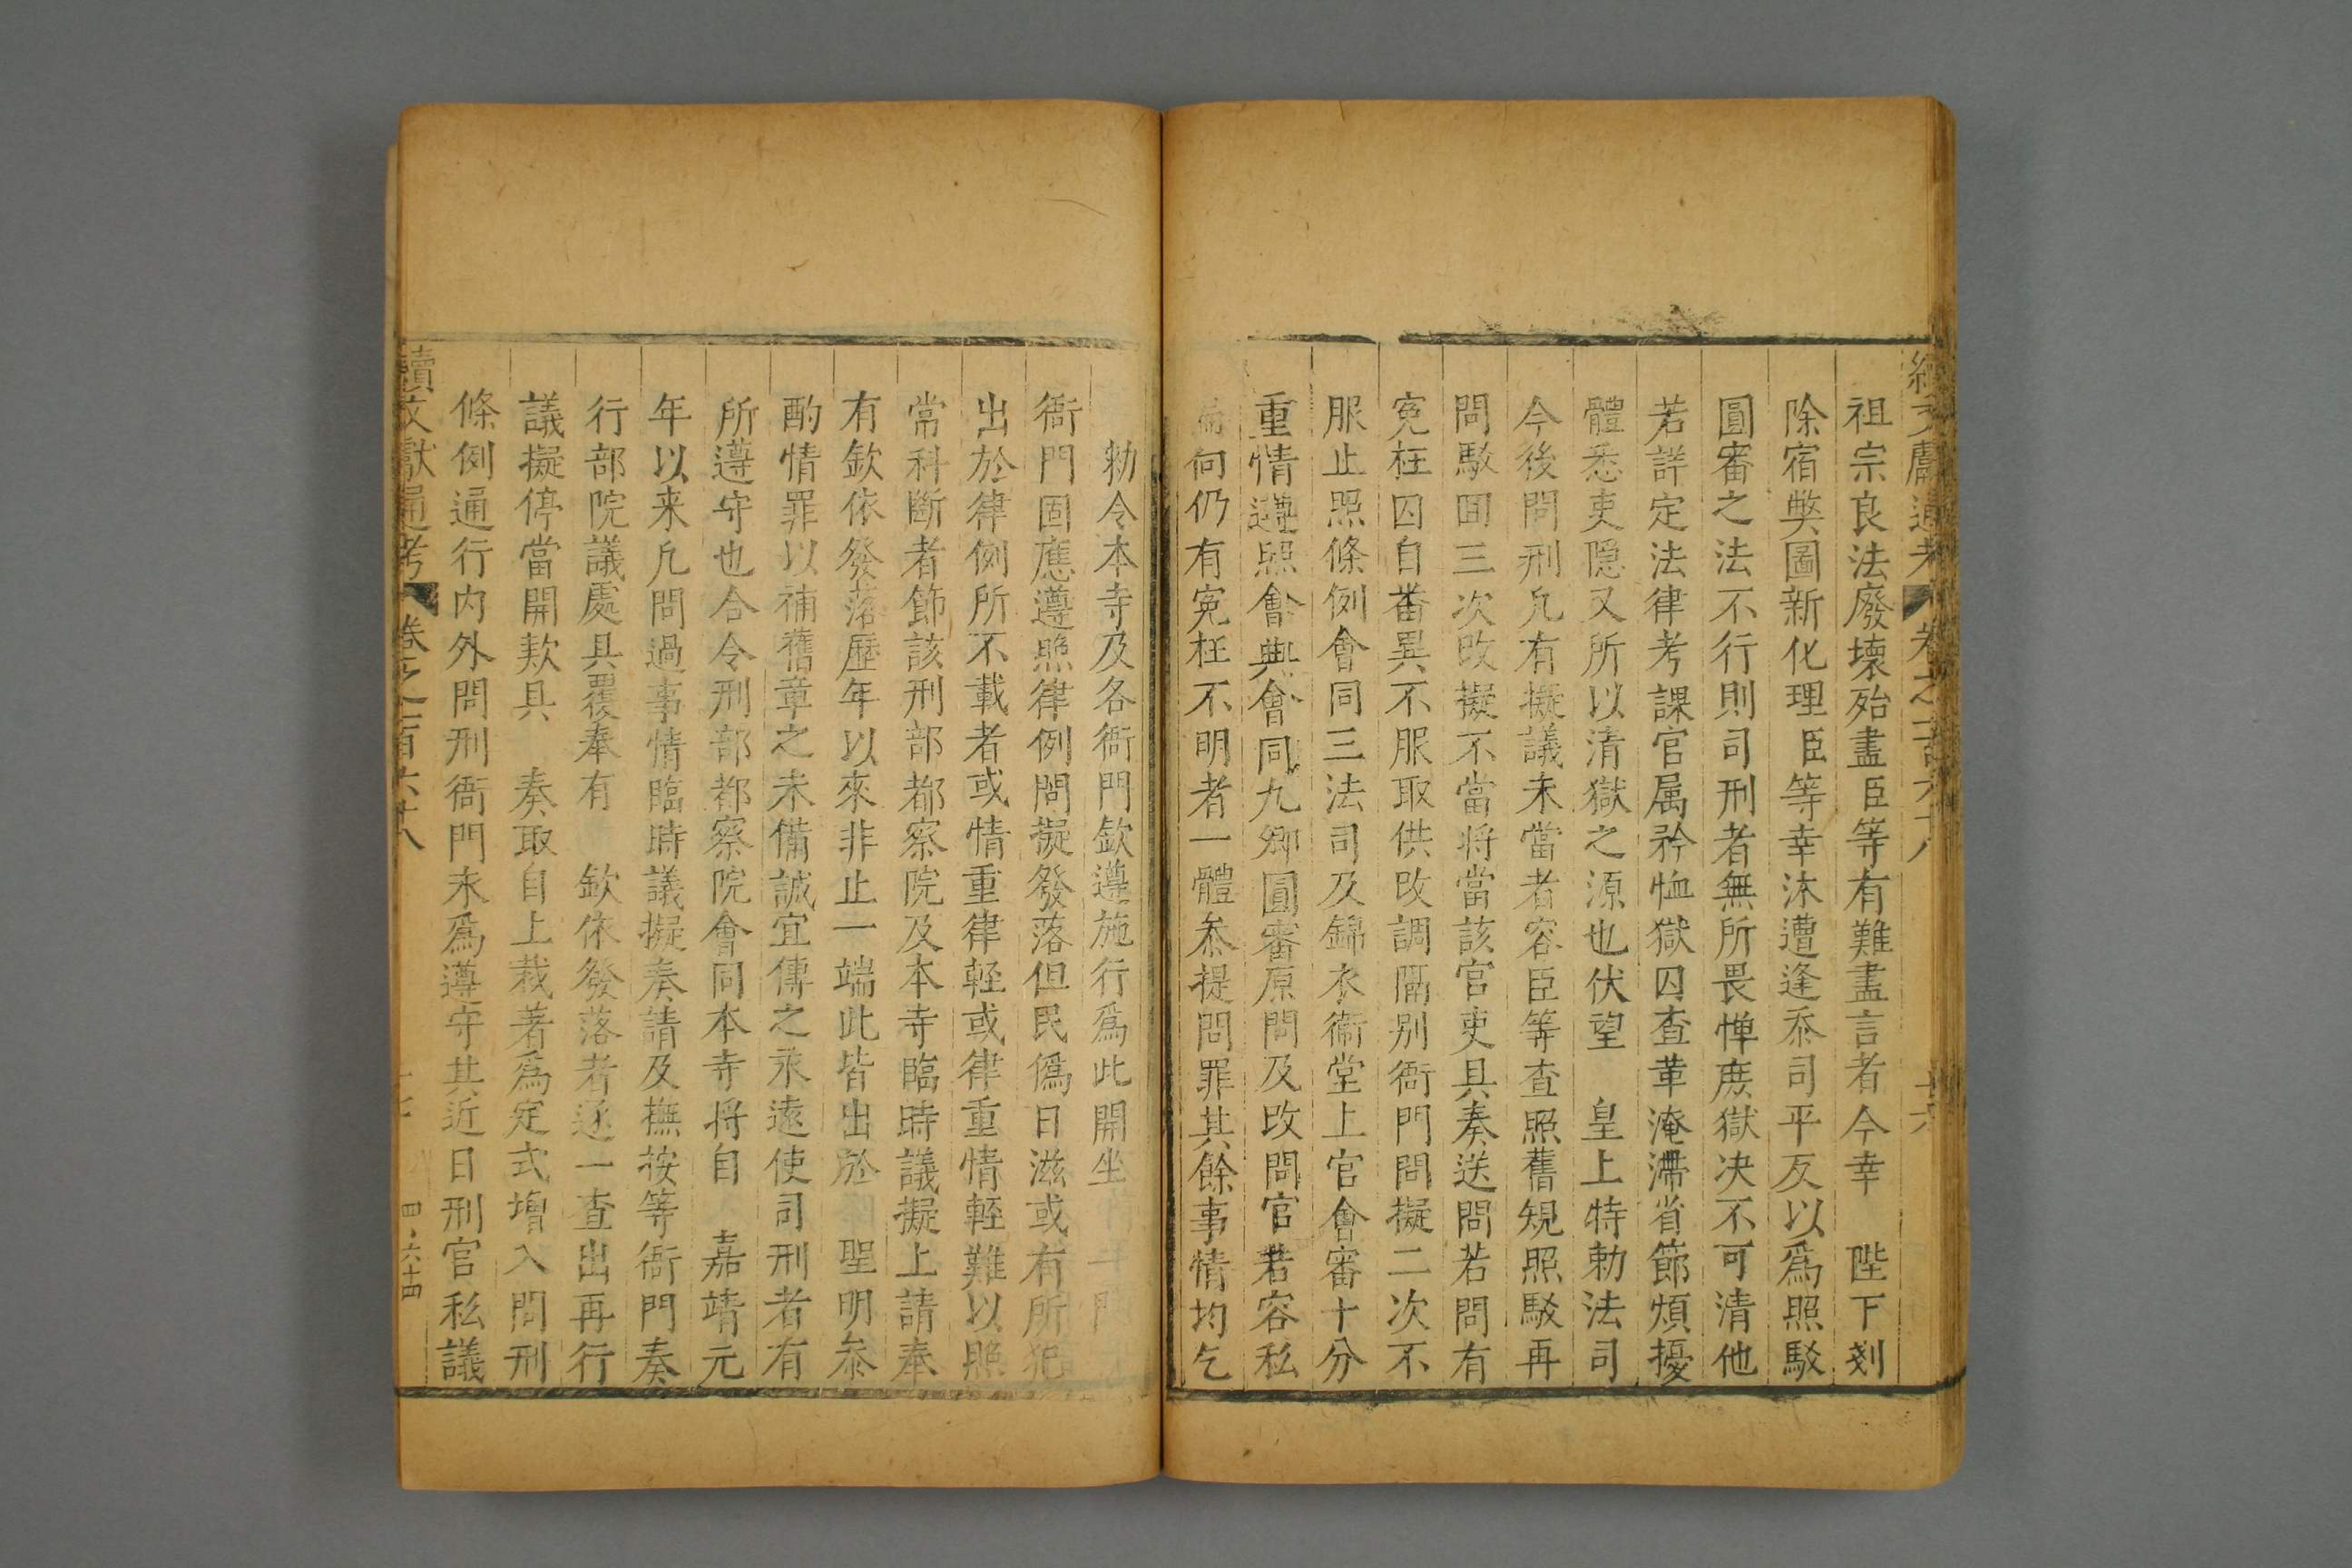 續文獻通考 卷之一百六十八 廿六
祖宗良法廢壞殆盡臣等有難盡言者今幸 陛下剗
除宿弊圖新化理臣等幸沐遭逢忝司平反以爲照駁
圓審之法不行則司刑者無所畏憚庻獄决不可清他
若詳定法律考課官属矜恤獄囚查革淹滯省節煩擾
體悉吏隠又所以清獄之源也伏望 皇上特勅法司
今後問刑凢有擬議未當者容臣等查照舊規照駁再
問駁囬三次改擬不當將當該官吏具奏送問若問有
冤枉囚自畨異不服取供改調隔别衙門問擬二次不
服止照條例會同三法司及錦衣衛堂上官會審十分
重情遵照會典會同九卿圓審原問及改問官若容私
偏向仍有冤枉不明者一體叅提問罪其餘事情均乞
勑令本寺及各衙門欽遵施行爲此開坐
衙門固應遵照律例問擬發落但民僞日滋或有所犯
出於律例所不載者或情重律軽或律重情軽難以照
常科斷者節該刑部都察院及本寺臨時議擬上請奉
有欽依發落歷年以來非止一端此皆出於 聖明叅
酌情罪以補舊章之未備誠宜傳之永遠使司刑者有
所遵守也合令刑部都察院會同本寺將自 嘉靖元
年以来凢問過事情臨時議擬奏請及撫按等衙門奏
行部院議處具覆奉有 欽依發落者逐一查出再行
議擬停當開欵具 奏取自上裁著爲定式增入問刑
條例通行内外問刑衙門永爲遵守其近日刑官私議
續文獻通考 卷之一百六十八
四·六十四